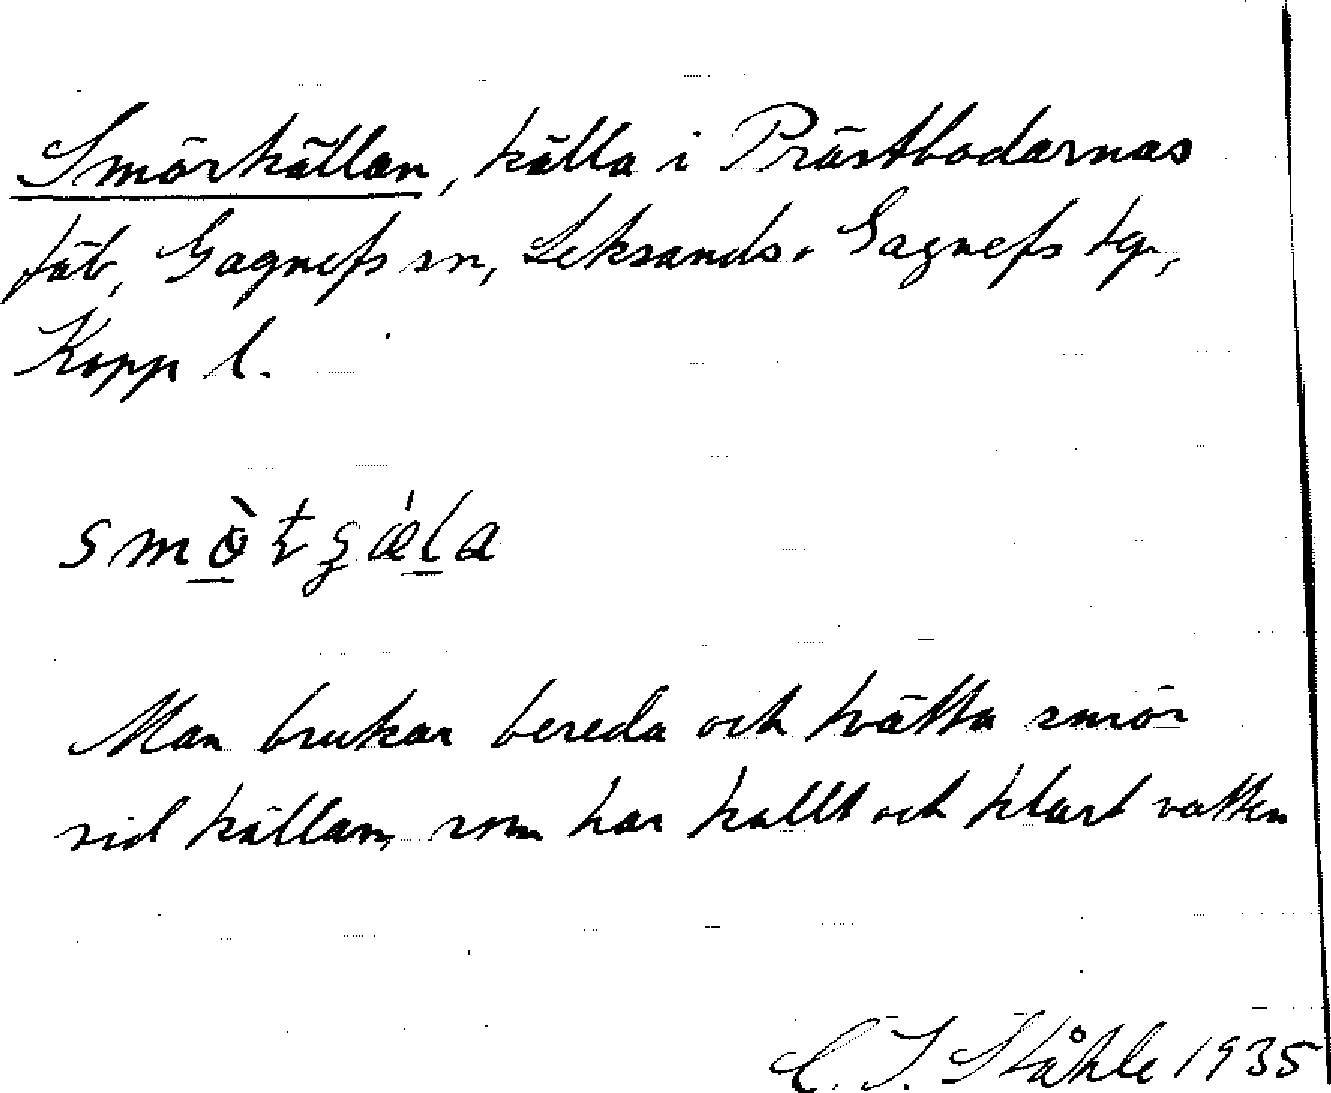 Smörkällan, källa i Prästbodarnas
fäb, Gagnefs sn, Leksands o Gagnefs tg,
Kopp l.
Man brukar bereda och tvätta smör
vid källan, som har kallt och klart vatten
C. I. Ståhle 1935